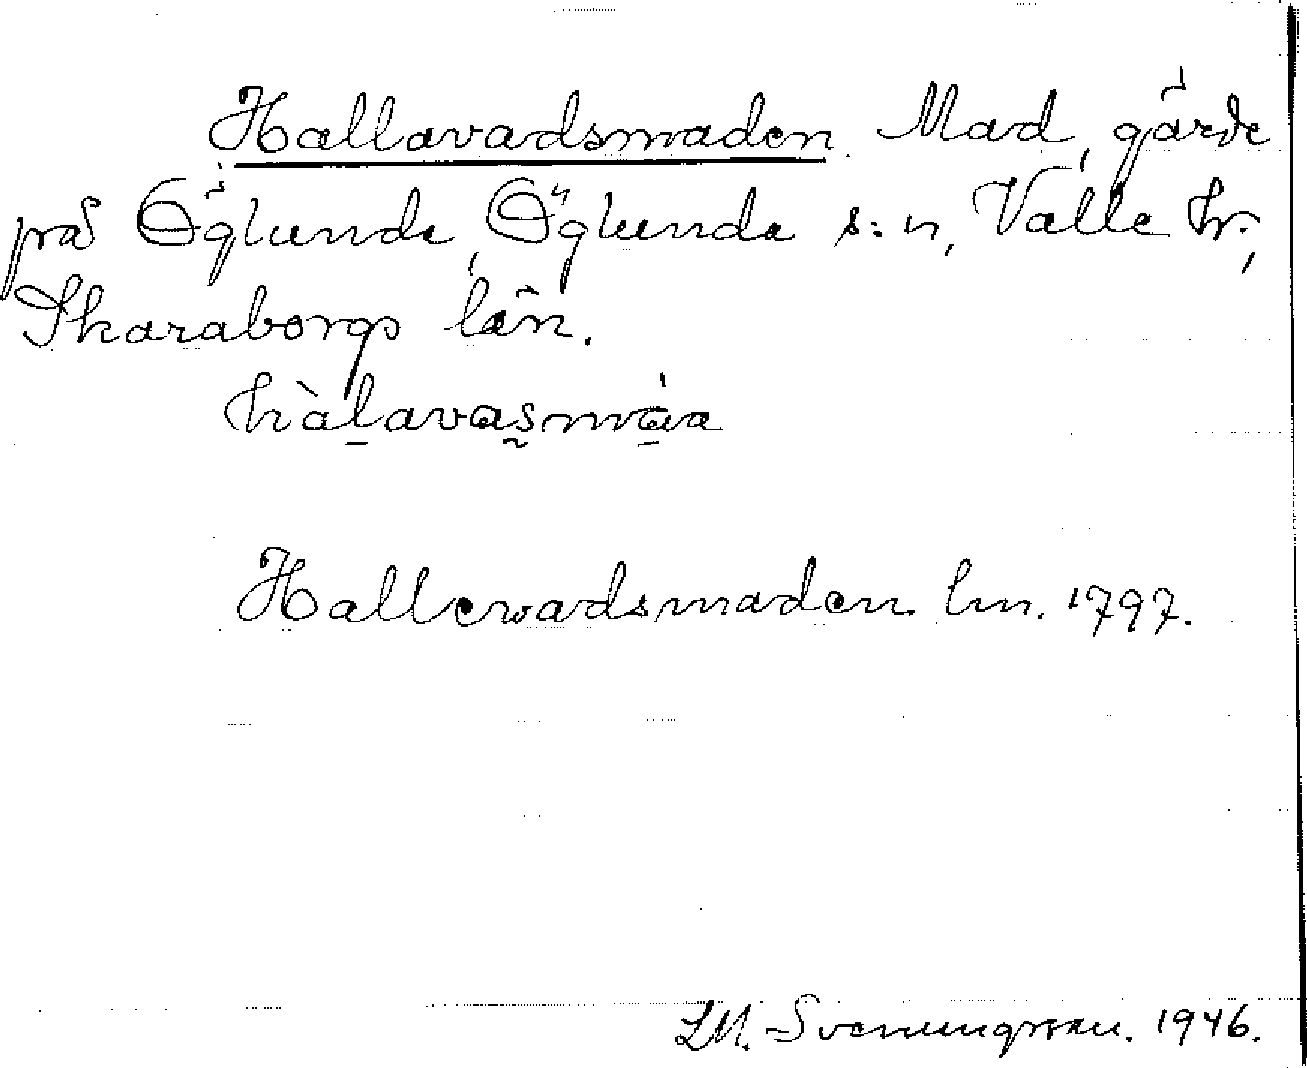 Hallavadsmaden. Mad, gärde
på Öglunda, Öglunda s:n, Valle hr,
Skaraborgs län.
hàl̠avas̰má̠a
Hallewadsmaden lm. 1797.
LM. Svenungsson. 1946.